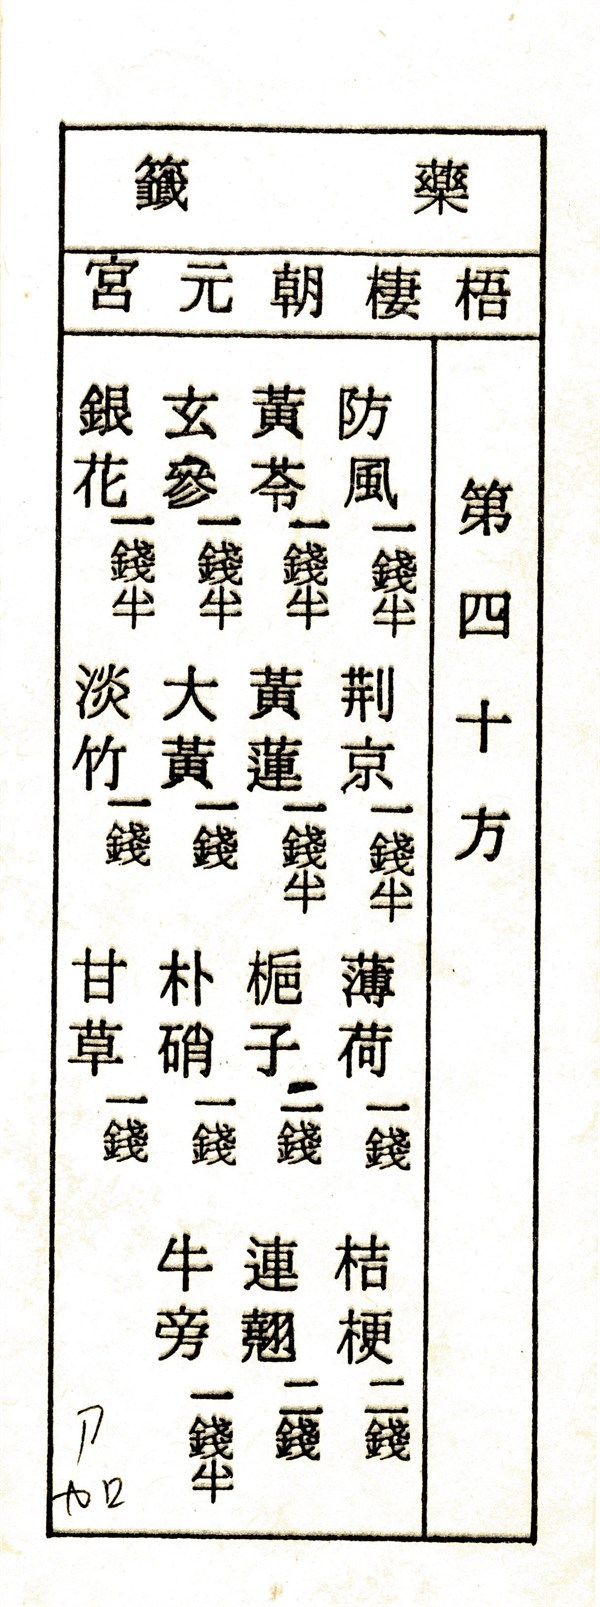 藥籤
梧棲朝元宮
第四十方
防風一錢半 荆京一錢半 薄荷一錢 桔梗二錢
黃芩一錢半 黃蓮一錢半 梔子二錢 連翹二錢
玄參一錢半 大黃一錢 朴硝一錢 牛旁一錢半
銀花一錢半 淡竹一錢 甘草一錢